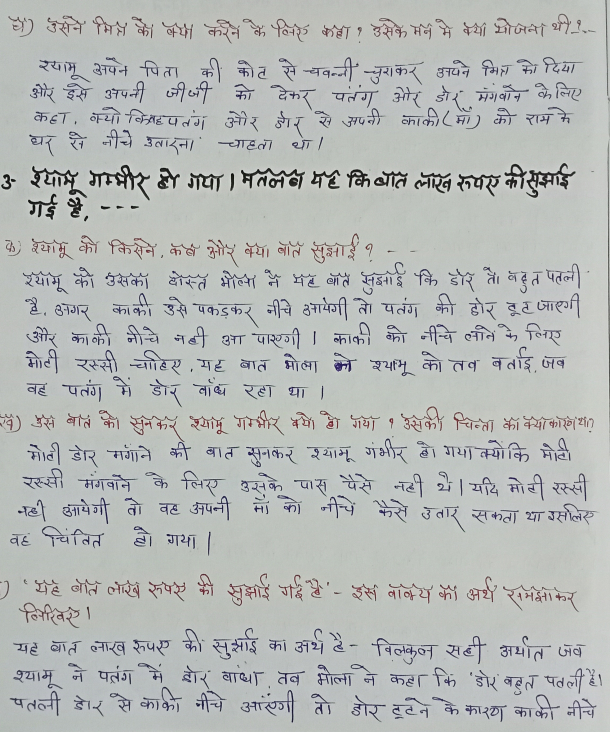 घ) उसने मित्र को क्या करने के लिए कहा? उसके मन मे क्या योजना थी?--
श्यामू अपने पिता की कोट से चवन्नी चुराकर अपने मित्र को दिया
और इसे अपनी जीजी को देकर पतंग और डोर मंगवाने के लिए
कहा, क्यो कि वह पतंग और डोर से अपनी काकी (माँ) को राम के
घर से नीचे उतारना चाहता था।
3- श्यामू गम्भीर हो गया। मतलब यह कि बात लाख रुपए की सुझाई
गई है, ---
क) श्यामू को किसने, कब और क्या बात सुझाई? ---
श्यामू को उसका दोस्त भोला ने यह बात सुझाई कि डोर तो बहुत पतली
है, अगर काकी उसे पकड़कर नीचे आयेगी तो पतंग की डोर टूट जाएगी
और काकी नीचे नही आ पाएगी। काकी को नीचे लाने के लिए
मोटी रस्सी चाहिए, यह बात भोला ने श्यामू को तब बताई, जब
वह पतंग में डोर बाँध रहा था।
ख) इस बात को सुनकर श्यामू गम्भीर क्यो हो गया? उसकी चिन्ता का क्या कारण था?
मोटी डोर मगाँने की बात सुनकर श्यामू गंभीर हो गया क्योकि मोटी
रस्सी मंगवाने के लिए उसके पास पैसे नही थे। यदि मोटी रस्सी
नही आयेगी तो वह अपनी माँ को नीचे कैसे उतार सकता था इसलिए
वह चिंतित हो गया।
) 'यह बात लाख रुपए की सुझाई गई है' - इस वाक्य का अर्थ समझाकर
लिखिए।
यह बात लाख रुपए की सुझाई का अर्थ है - बिलकुल सही अर्थात जब
श्यामू ने पतंग में डोर बाँधा, तब भोला ने कहा कि 'डोर बहुत पतली है।
पतली डोर से काकी नीचे आएंगी तो डोर टूटने के कारण काकी नीचे